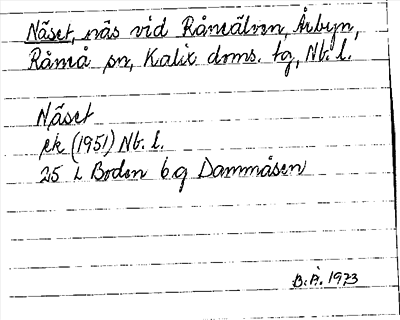 Näset, näs vid Råneälven, Årbyn,
Råneå sn, Kalix doms. tg, Nb. l.
Näset
ek (1951) Nb. l.
25 L Boden 6 g Dammåsen
B.Å. 1973